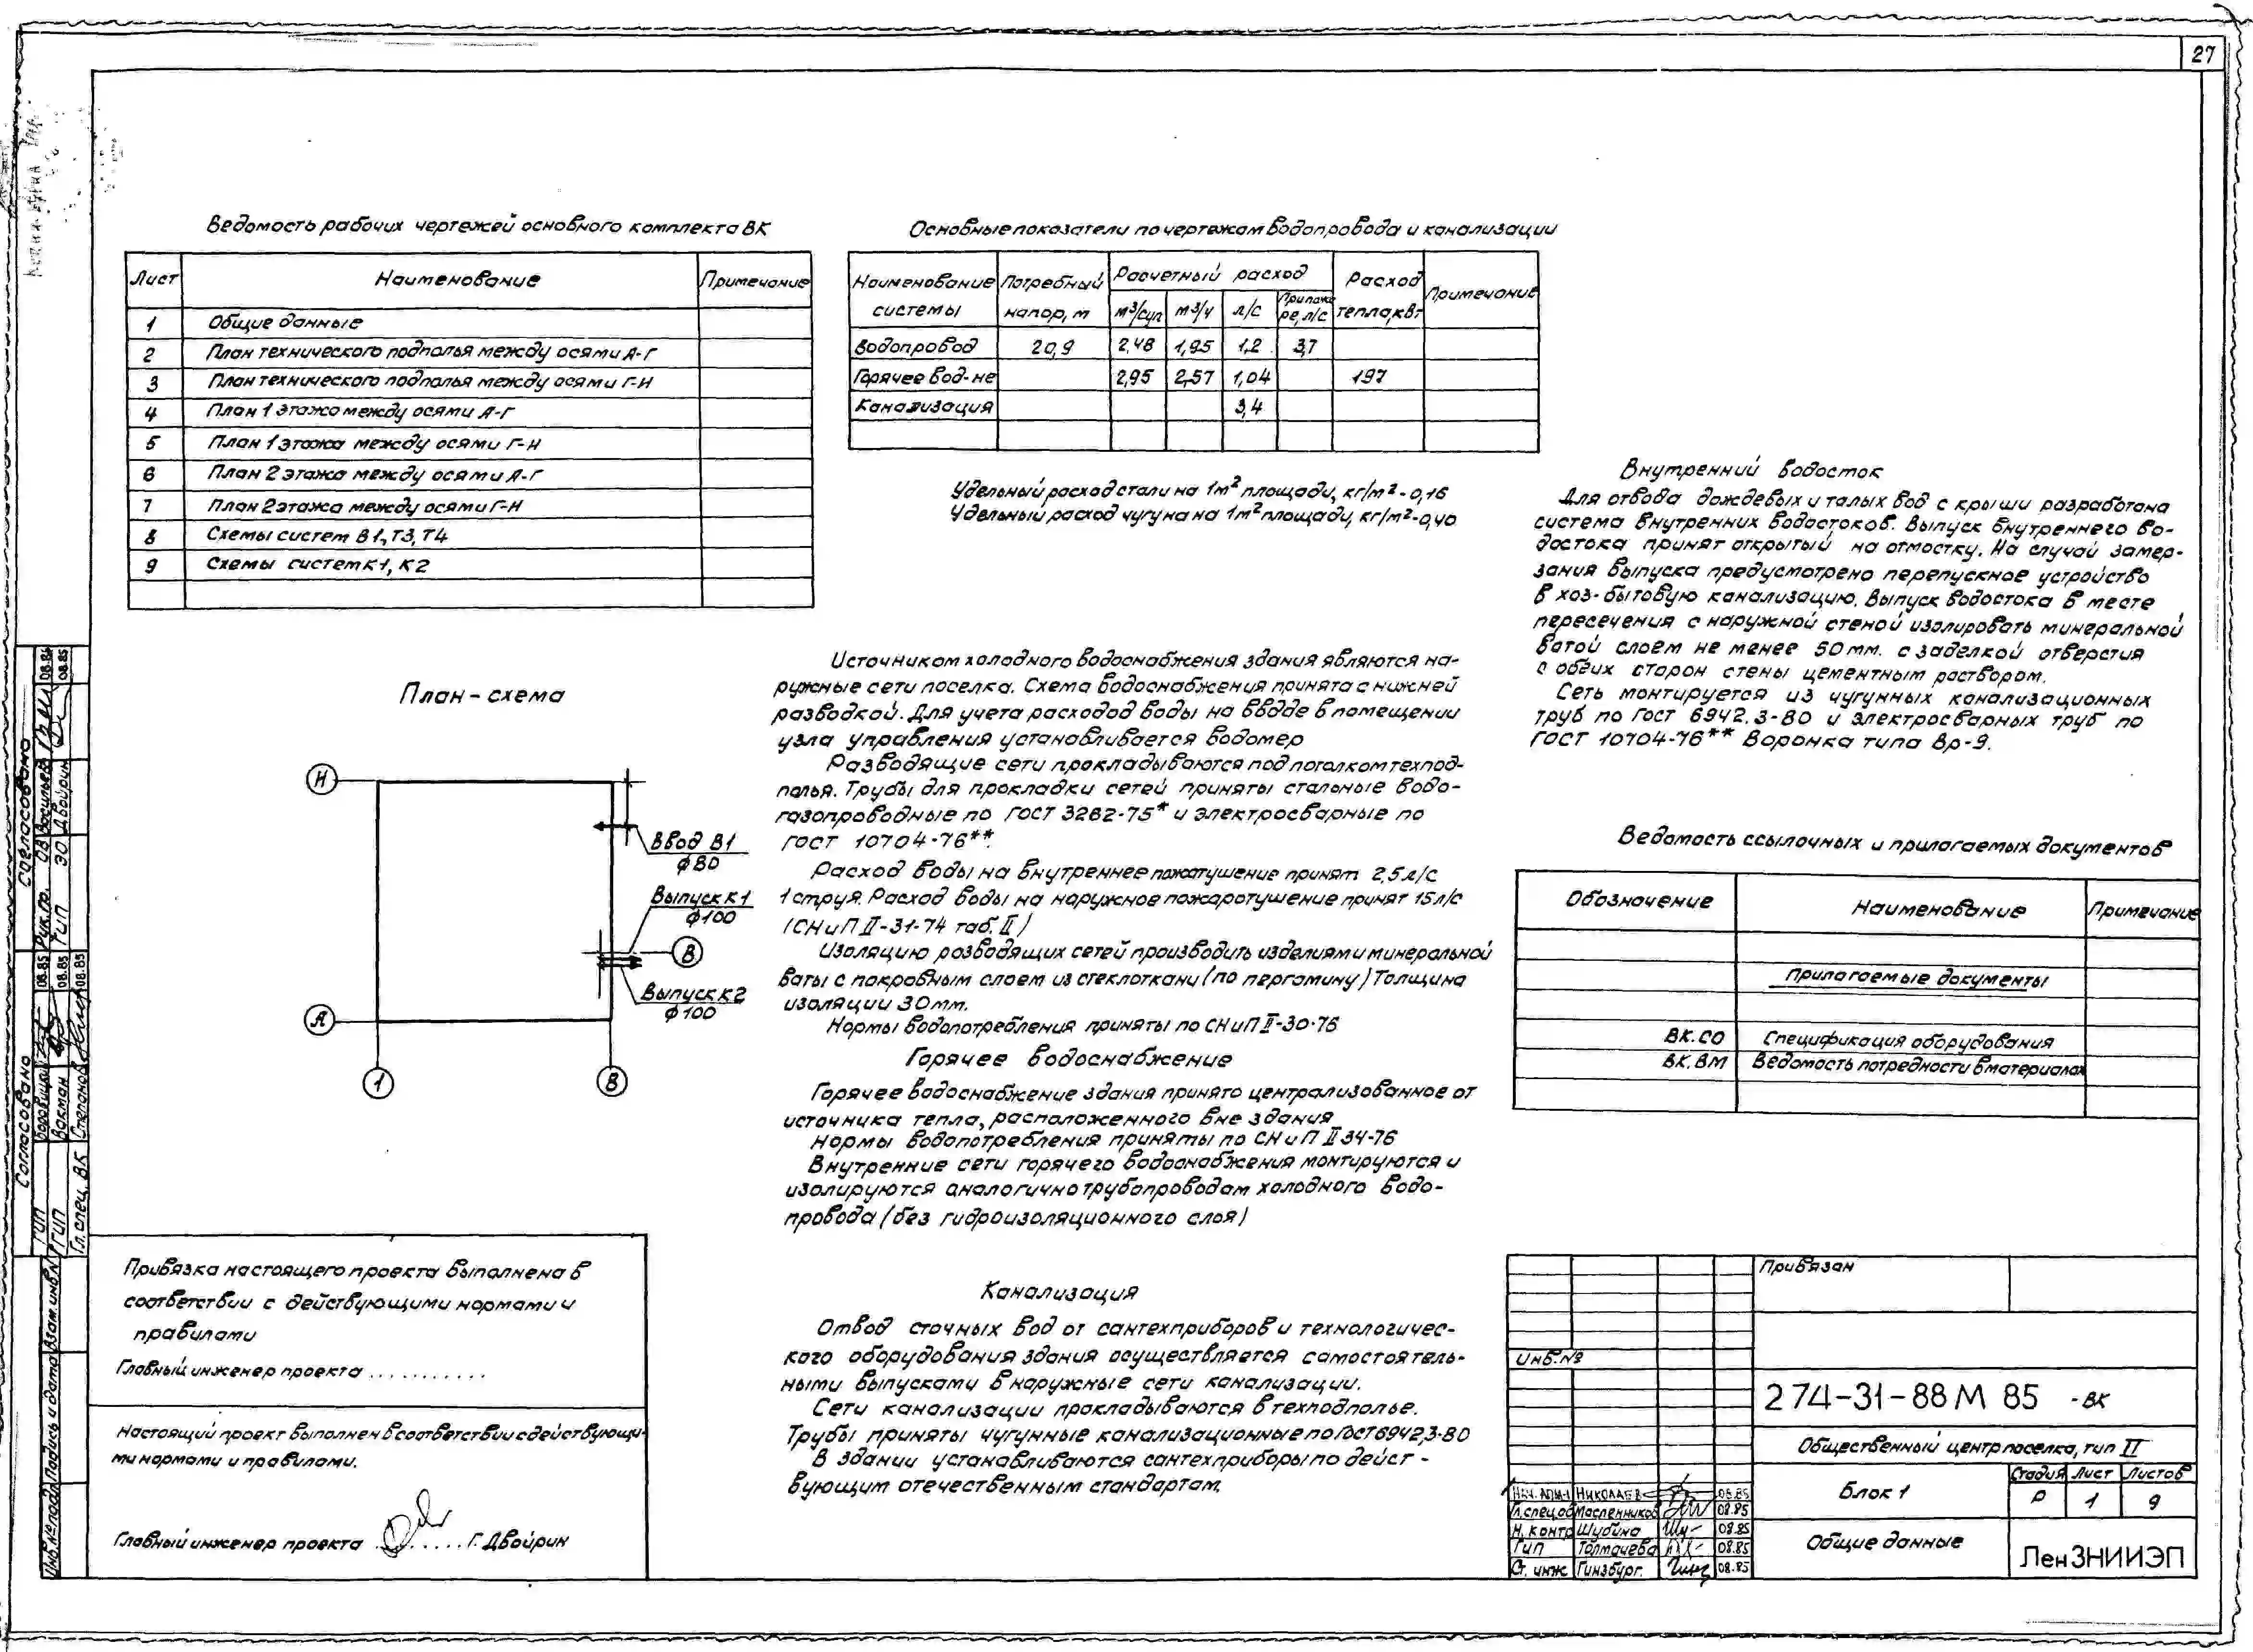 27
Ведомость рабочих чертежей основного комплекта ВК
Лист Наименование Примечание
1 Общие данные
2 План технического подполья между осями А-Г
3 План технического подполья между осями Г-И
4 План 1 этажа между осями А-Г
5 План 1 этажа между осями Г-И
6 План 2 этажа между осями А-Г
7 План 2 этажа между осями Г-И
8 Схемы систем В1, Т3, Т4
9 Схемы систем К1, К2
Основные показатели по чертежам водопровода и канализации
Наименование системы Потребный напор, м Расчетный расход Расход тепла, кВт Примечание
м³/сут м³/ч л/с При пожаре, л/с
Водопровод 20,9 2,48 1,95 1,2 3,7
Горячее вод-не 2,95 2,57 1,04 197
Канализация 3,4
Удельный расход стали на 1м² площади, кг/м² - 0,16
Удельный расход чугуна на 1м² площади, кг/м² - 0,40
План-схема
И
А
1
В
В
Ввод В1
ф80
Выпуск К1
ф100
Выпуск К2
ф100
Источником холодного водоснабжения здания являются на-
ружные сети поселка. Схема водоснабжения принята с нижней
разводкой. Для учета расходод воды на вводе в помещении
узла управления устанавливается водомер
Разводящие сети прокладываются под потолком технод-
полья. Трубы для прокладки сетей приняты стальные водо-
газопроводные по ГОСТ 3262-75* и электросварные по
ГОСТ 10704-76**.
Расход воды на внутреннее пожатушение принят 2,5 л/с
1 струя. Расход воды на наружное пожаротушение принят 15 л/с
(СНиП II-31-74 таб. II)
Изоляцию разводящих сетей производить изделиями минеральной
ваты с покровным слоем из стеклоткани (по пергамину) Толщина
изоляции 30мм.
Нормы водопотребления приняты по СНиП II-30-76
Горячее водоснабжение
Горячее водоснабжение здания принято централизованное от
источника тепла, расположенного вне здания
Нормы водопотребления приняты по СНиП II 34-76
Внутренние сети горячего водоснабжения монтируются и
изолируются аналогично трубопроводам холодного водо-
провода (без гидроизоляционного слоя)
Канализация
Отвод сточных вод от сантехприборов и технологичес-
кого оборудования здания осуществляется самостоятель-
ными выпусками в наружные сети канализации.
Сети канализации прокладываются в техподполье.
Трубы приняты чугунные канализационные по ГОСТ 6942,3-80
В здании устанавливаются сантехприборы по дейст-
вующим отечественным стандартам.
Внутренний водосток
Для отвода дождевых и талых вод с крыши разработана
система внутренних водостоков. Выпуск внутреннего во-
достока принят открытый на отмостку. На случай замер-
зания выпуска предусмотрено перепускное устройство
в хоз-бытовую канализацию. Выпуск водостока в месте
пересечения с наружной стеной изолировать минеральной
ватой слоем не менее 50мм. с заделкой отверстия
с обеих сторон стены цементным раствором.
Сеть монтируется из чугунных канализационных
труб по ГОСТ 6942.3-80 и электросварных труб по
ГОСТ 10704-76** Воронка типа Вр-9.
Ведомость ссылочных и прилагаемых документов
Обозначение Наименование Примечание
Прилагаемые документы
ВК.СО Спецификация оборудования
ВК.ВМ Ведомость потребности в материалах
Привязка настоящего проекта выполнена в
соответствии с действующими нормами и
правилами
Главный инженер проекта ...........
Настоящий проект выполнен в соответствии с действующи-
ми нормами и правилами.
Главный инженер проекта ......... Г. Двойрин
Согласовано
Рук.гр. ОВ Васильев 08.85
ГИП ЭО Двойрин 08.85
Согласовано
ГИП 08.85
ГИП Вакман 08.85
Гл.спец. ВК Степанов 08.85
Инв.№подл Подпись и дата Взам.инв.№
Привязан
Инв.№
274-31-88М 85 -ВК
Общественный центр поселка, тип II
Блок 1
Стадия Лист Листов
Р 1 9
Общие данные
ЛенЗНИИЭП
Нач. АПМ-1 Николаев 08.85
Гл.спец.об Масленников 08.85
Н.контр Шубина 08.85
ГИП Толмачева 08.85
Ст. инж Гинзбург. 08.85